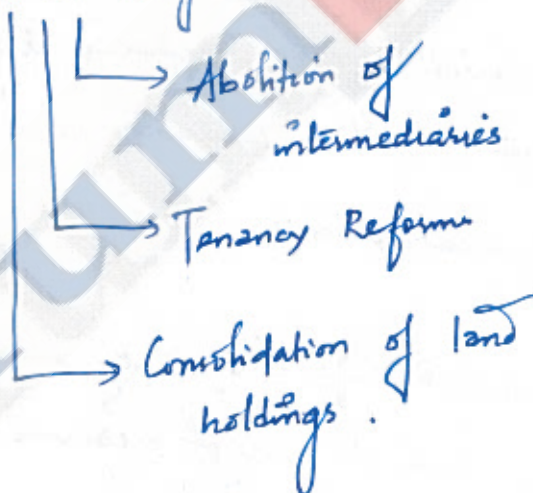 Abolition of
intermediaries
Tenancy Reforms
Consolidation of land
holdings.